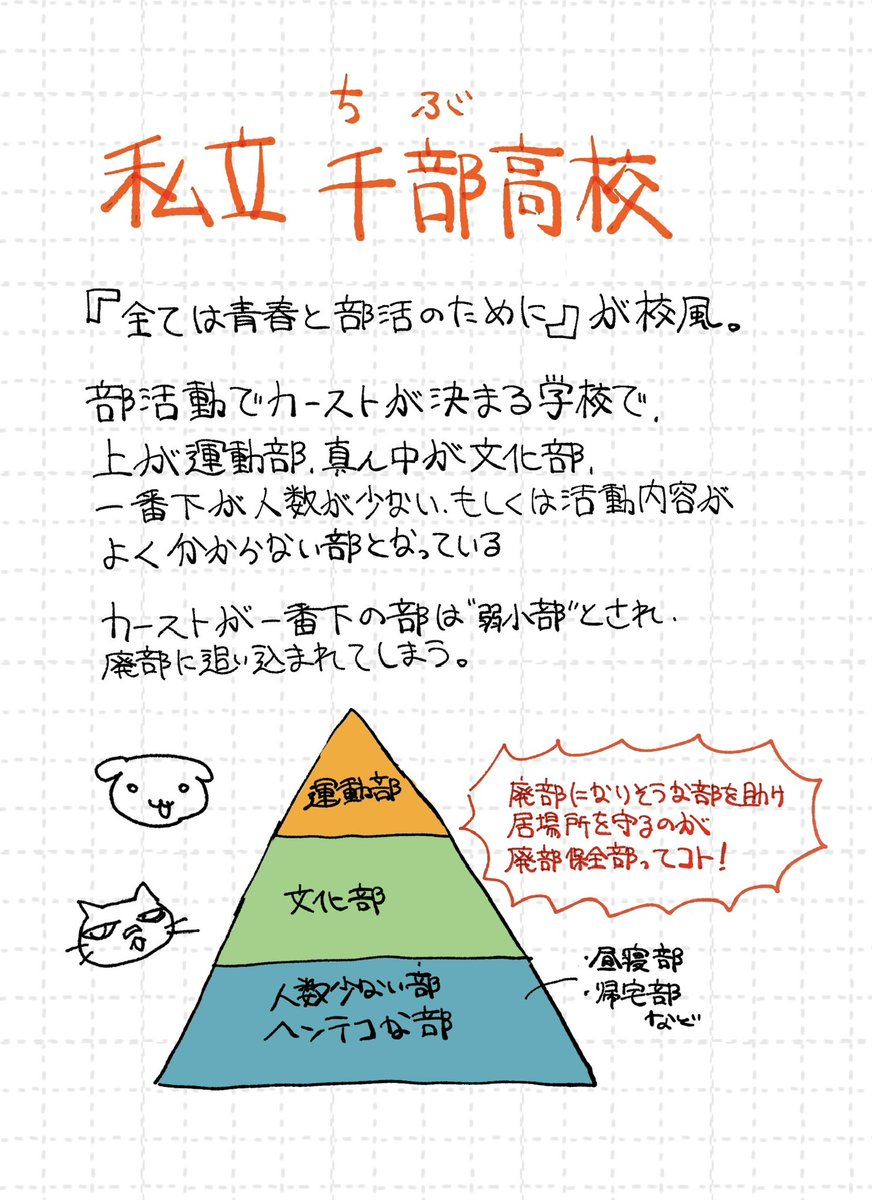 ちぶ
私立 千部高校
『全ては青春と部活のために』が校風。
部活動でカーストが決まる学校で、
上が運動部、真ん中が文化部、
一番下が人数が少ない、もしくは活動内容が
よく分からない部となっている
カーストが一番下の部は"弱小部"とされ、
廃部に追い込まれてしまう。
運動部
文化部
人数少ない部
ヘンテコな部
廃部になりそうな部を助け
居場所を守るのが
廃部保全部ってコト!
・昼寝部
・帰宅部
など